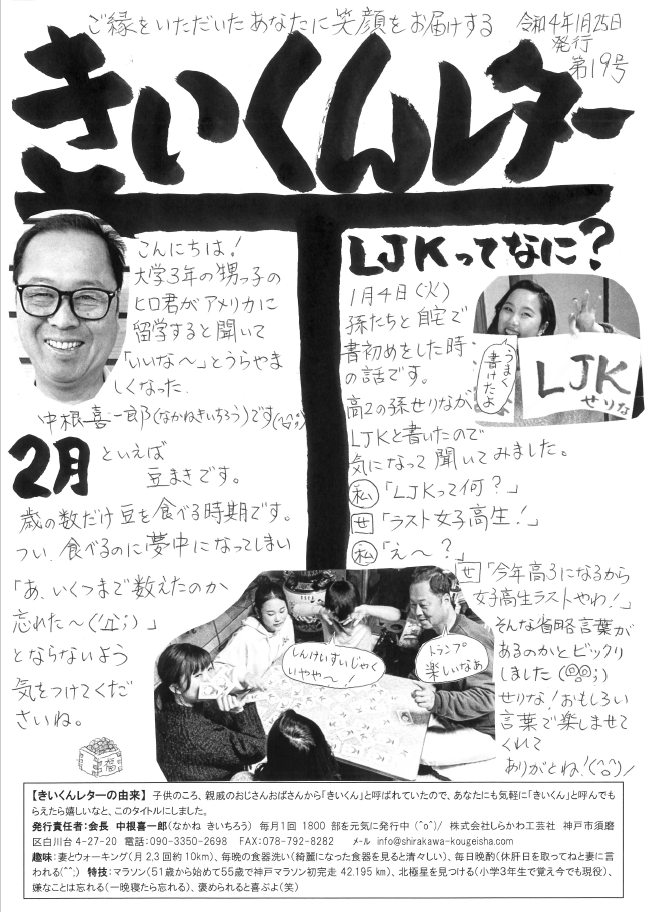 ご縁をいただいたあなたに笑顔をお届けする
令和4年1月25日
発行
第19号
きいくんレター
こんにちは!
大学3年の甥っ子の
ヒロ君がアメリカに
留学すると聞いて
「いいな〜」とうらやま
しくなった
中根喜一郎(なかねきいちろう)です(^^;)
2月といえば
豆まきです。
歳の数だけ豆を食べる時期です。
つい、食べるのに夢中になってしまい
「あ、いくつまで数えたのか
忘れた〜(;'Д`;)」
とならないよう
気をつけてくだ
さいね。
福
LJKってなに?
1月4日(火)
孫たちと自宅で
書初めをした時
の話です。
高2の孫せりなが
LJKと書いたので
気になって聞いてみました。
私「LJKって何?」
せ「ラスト女子高生!」
私「え〜?」
せ「今年高3になるから
女子高生ラストやわ!」
そんな省略言葉が
あるのかとビックリ
しました(◎◎;)
せりな!おもしろい
言葉で楽しませて
くれて
ありがとね!(^○^)/
うまく
書けたよ
LJK
せりな
しんけいすいじゃく
いやや〜!
トランプ
楽しいなあ
【きいくんレターの由来】 子供のころ、親戚のおじさんおばさんから「きいくん」と呼ばれていたので、あなたにも気軽に「きいくん」と呼んでも
らえたら嬉しいなと、このタイトルにしました。
発行責任者:会長 中根喜一郎(なかね きいちろう) 毎月1回 1800 部を元気に発行中 (^o^)/ 株式会社しらかわ工芸社 神戸市須磨
区白川台 4-27-20 電話:090-3350-2698 FAX:078-792-8282 メール info@shirakawa-kougeisha.com
趣味:妻とウォーキング(月 2,3 回約 10km)、毎晩の食器洗い(綺麗になった食器を見ると清々しい)、毎日晩酌(休肝日を取ってねと妻に言
われる(^^;) 特技:マラソン(51歳から始めて55歳で神戸マラソン初完走 42.195 km)、北極星を見つける(小学3年生で覚え今でも現役)、
嫌なことは忘れる(一晩寝たら忘れる)、褒められると喜ぶよ(笑)